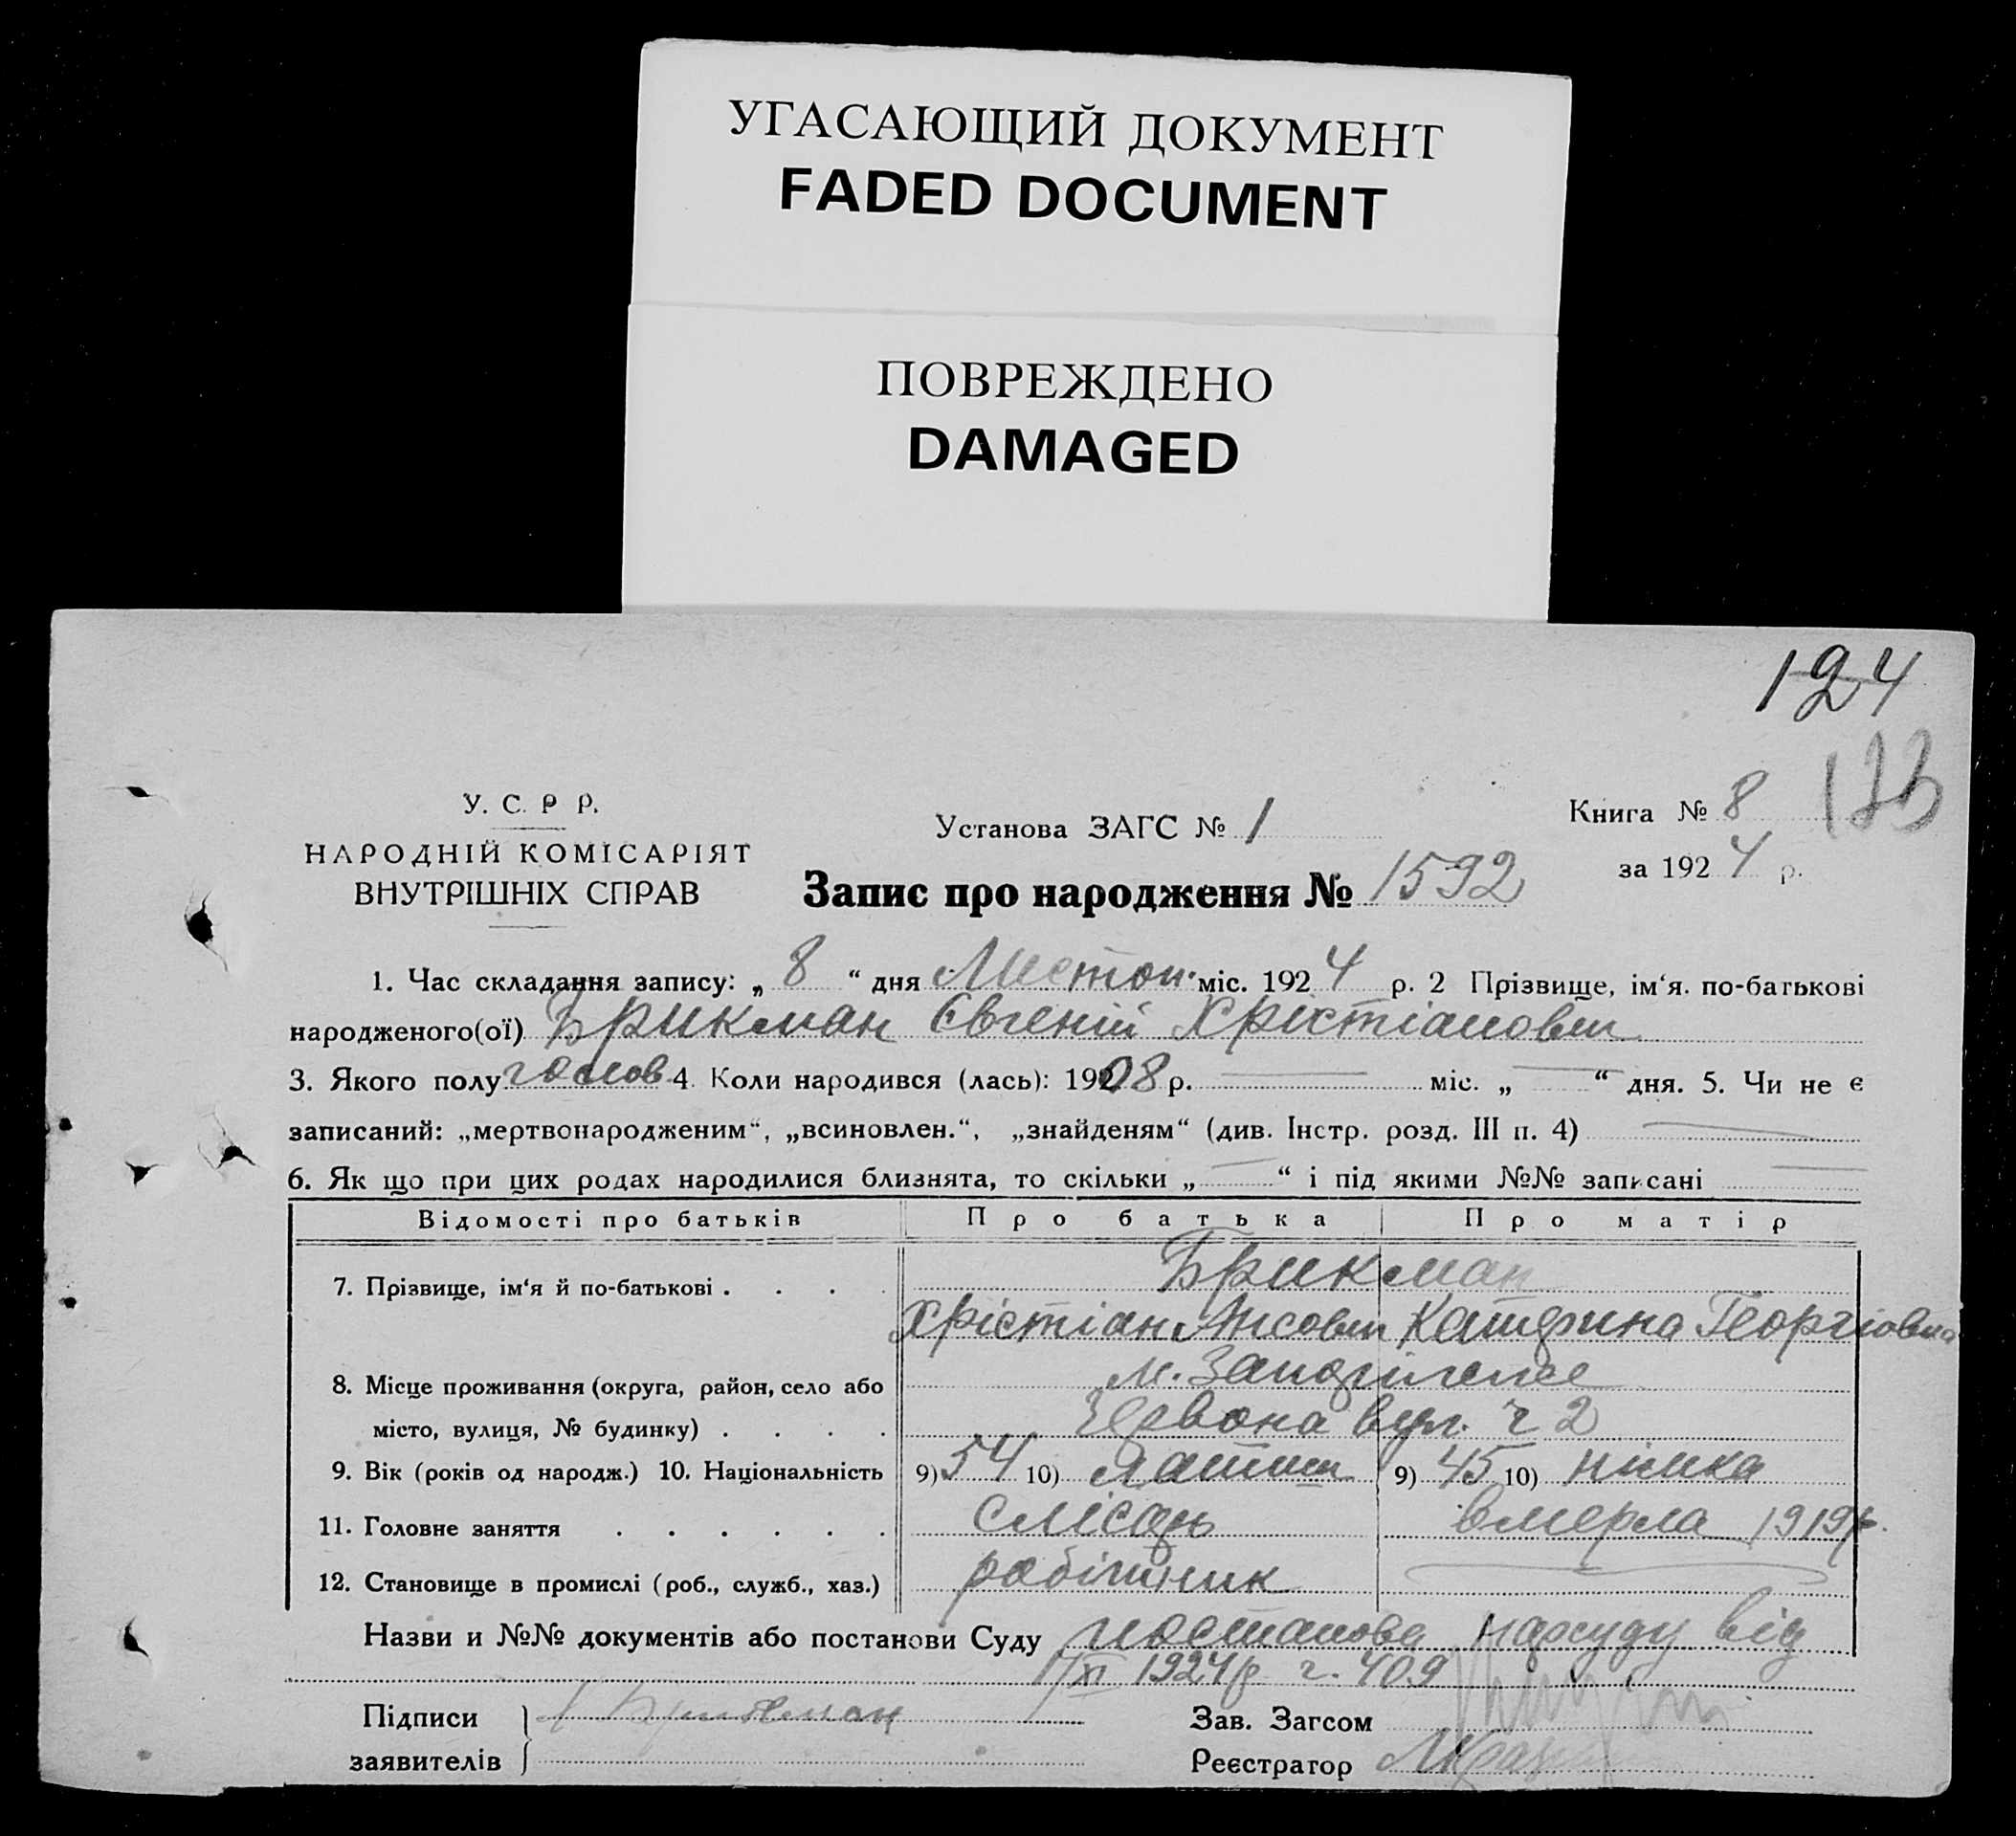 УГАСАЮЩИЙ ДОКУМЕНТ
FADED DOCUMENT
ПОВРЕЖДЕНО
DAMAGED
124
У. С. Р Р.
НАРОДНІЙ КОМІСАРІЯТ
ВНУТРІШНІХ СПРАВ
Установа ЗАГС № 1
Книга № 8
за 1924 р.
Запис про народження № 1592
1. Час складання запису: „ 8 “ дня Листоп. міс. 1924 р. 2 Прізвище, ім‘я. по-батькові
народженого(ої) Брикман Євгеній Хрістіанович
3. Якого полу 4. Коли народився (лась): 1908 р. — міс. „ — “ дня. 5. Чи не є
записаний: „мертвонародженим“, „всиновлен.“, „знайденям“ (див. Інстр. розд. III п. 4) —
6. Як що при цих родах народилися близнята, то скільки „ — “ і під якими №№ записані —
Відомості про батьків Про батька Про матір
7. Прізвище, ім‘я й по-батькові . . . . Брикман
Хрістіан Катерина Георгіовна
8. Місце проживання (округа, район, село або м.
місто, вулиця, № будинку) . . . . Червона вул. ч 2
9. Вік (років од народж.) 10. Національність 9) 54 10) Латиш 9) 45 10) німка
11. Головне заняття . . . . . . слюсарь вмерла 1919 р.
12. Становище в промислі (роб., служб., хаз.) робітник —
Назви и №№ документів або постанови Суду постанова нарсуду від
XI 1924 р ч. 409
Підписи Брикман
заявителів
Зав. Загсом
Реєстратор